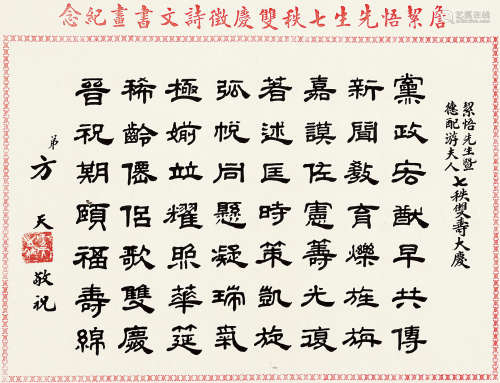 詹絜悟先生七秩雙慶徵詩文書畫紀念
絜悟先生暨
德配游夫人七秩雙壽大慶
黨政宏猷早共傳
新聞教育爍旌旃
嘉謨佐憲籌光復
著述匡時策凱旋
弧帨同懸凝瑞氣
極媊竝耀照華筵
稀齡僊侶歌雙慶
晉祝期頤福壽綿
弟方天敬祝